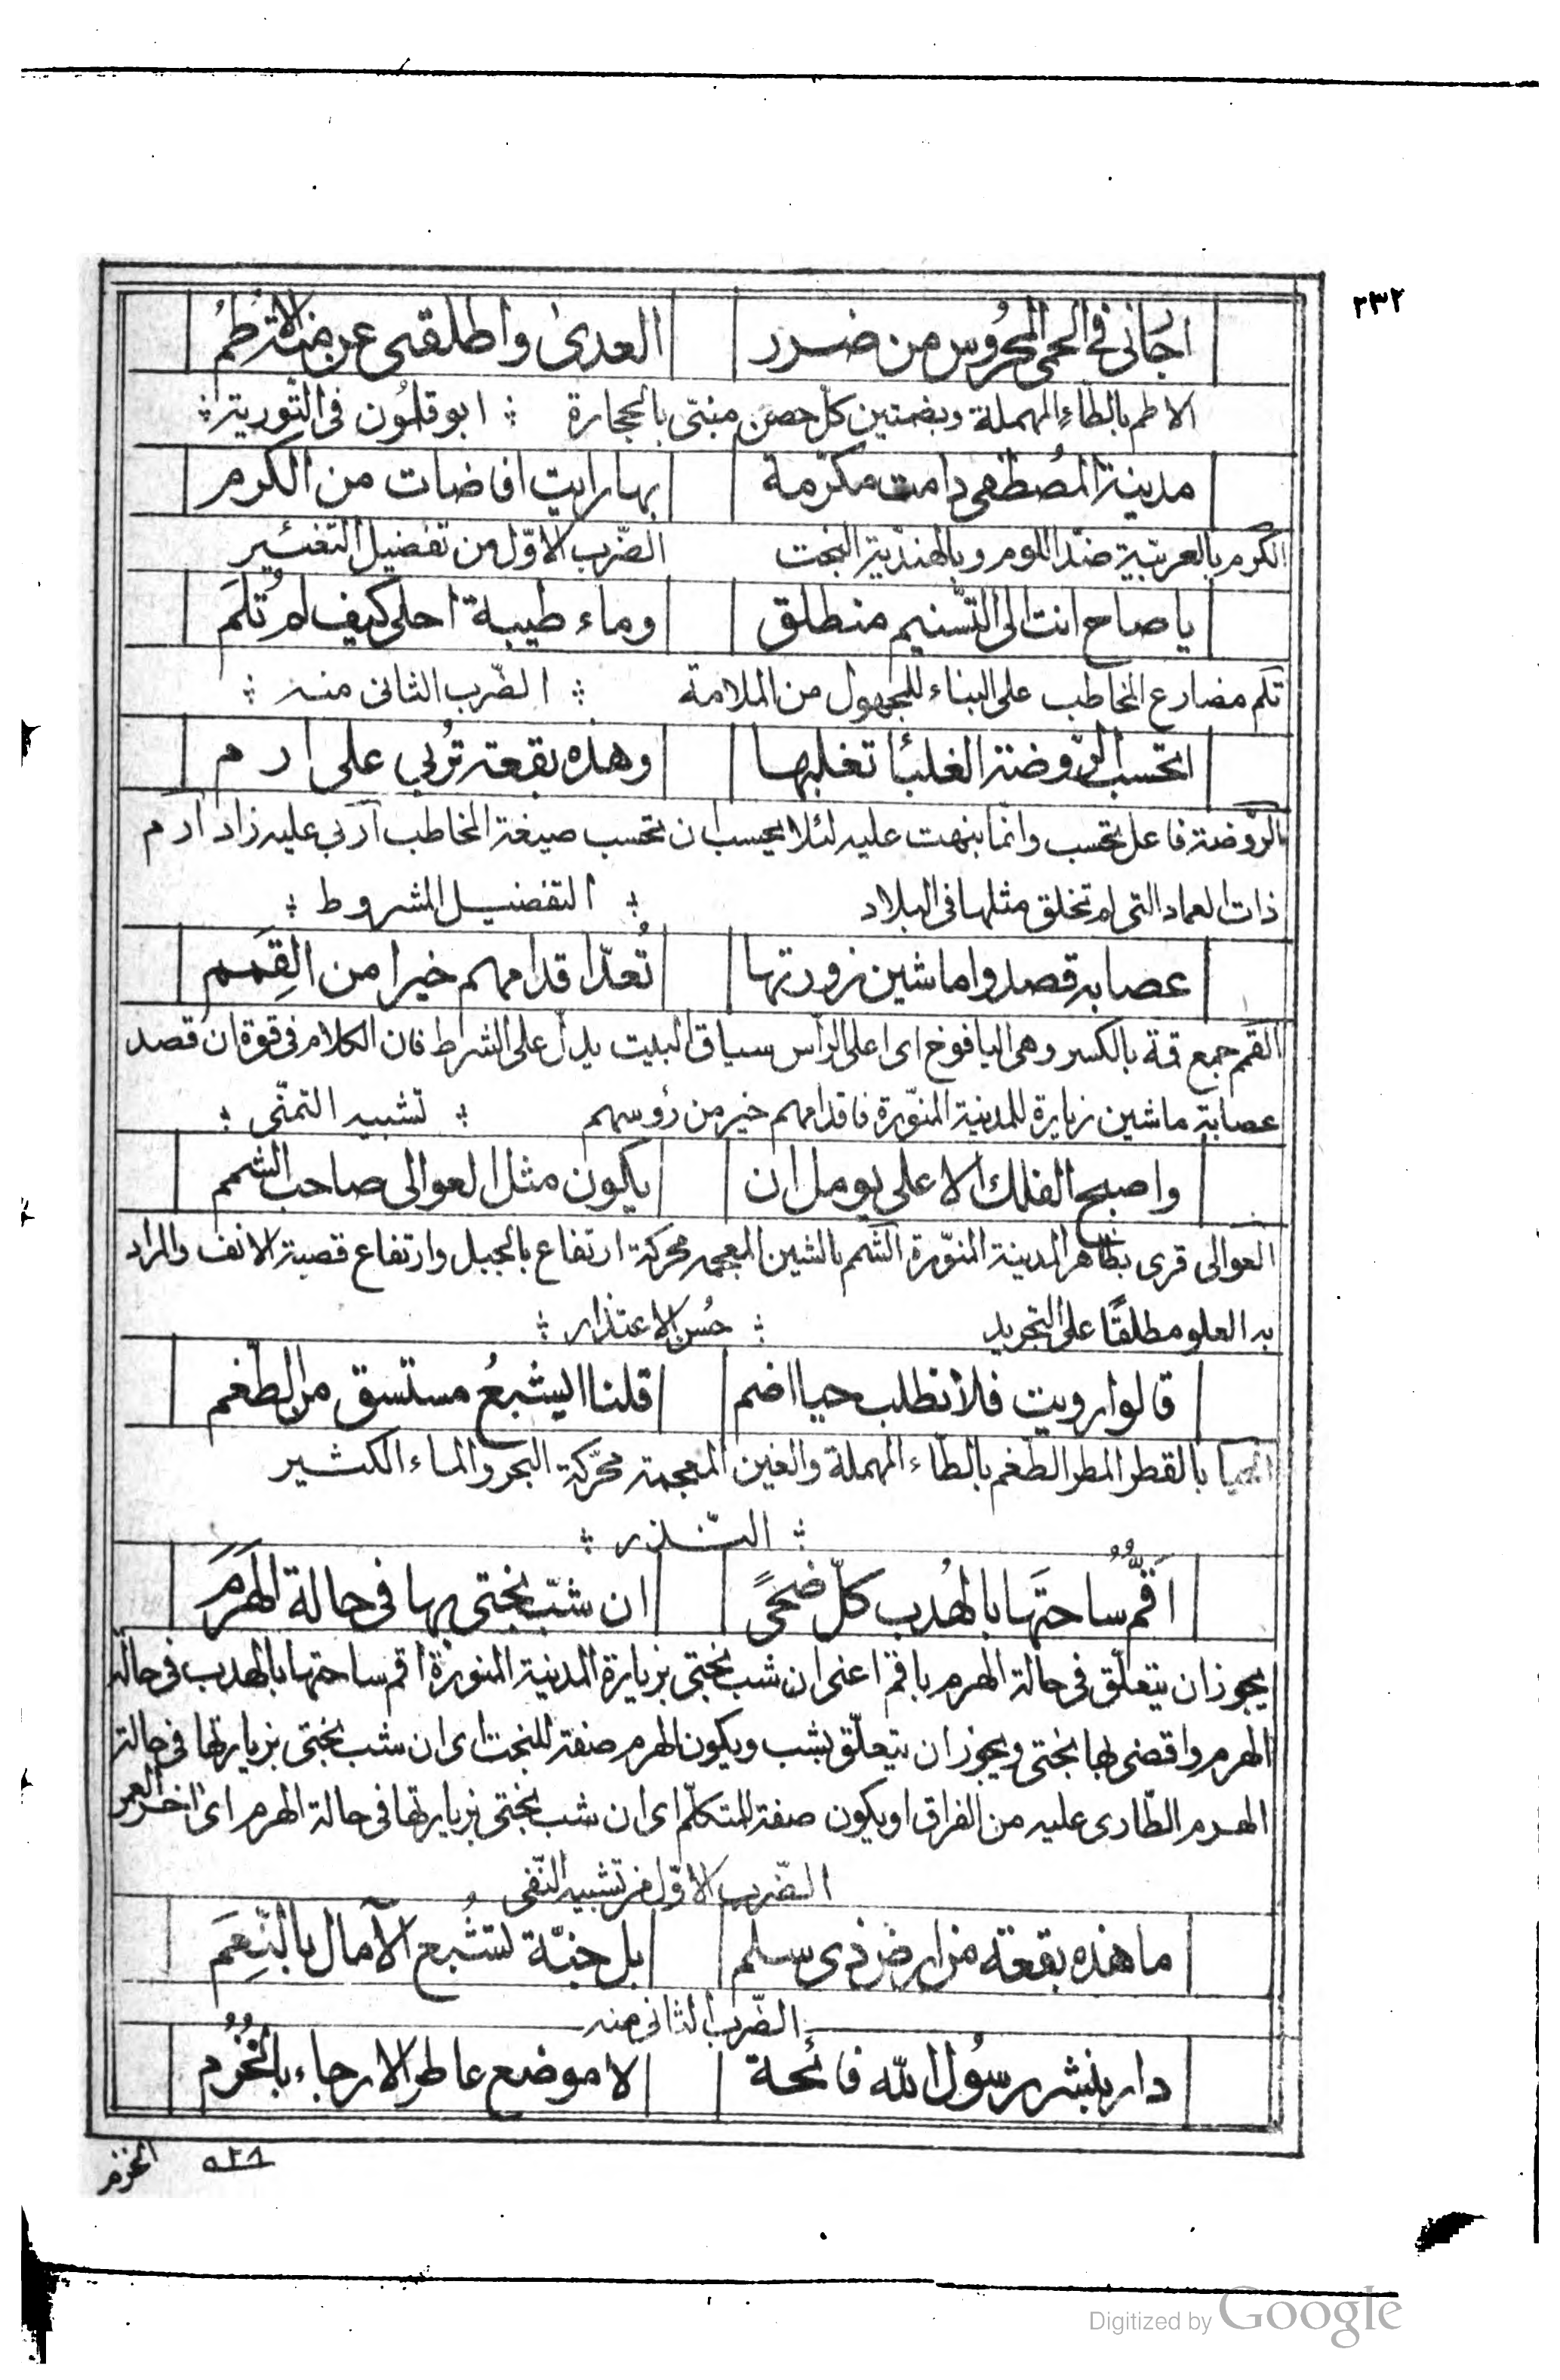 ٢٣٢
اجانى فى الحمى المحروس من ضرر العدى واطلقنى عن منة الاطم
الاطم بالطاء المهملة وبضمتين كل حصن مبنى بالحجارة ؛ ابو قلمون فى التورية ؛
مدينة المصطفى دامت مكرمة بها رايت افاضات من الكرم
الكرم بالعربية ضد اللوم وبالهندية البخت الضرب الاول من تفضيل التغئير
يا صاح انت الى التسنيم منطلق وماء طيبة احلى كيف لم تُلَم
تلم مضارع المخاطب على البناء للمجهول من الملامة ؛ الضرب الثانى منه ؛
اتحسب الروضة الغلبا تغلبها وهذه بقعة تُربى على ارم
الروضة فاعل تحسب وانما نبهت عليه لئلا يحسب ان تحسب صيغة المخاطب اربى عليه زاد ارم
ذات العماد التى لم تخلق مثلها فى البلاد ؛ التفضيل المشروط ؛
عصابة قصدوا ماشين زورتها تُعدّ اقدامهم خيرا من القِمَم
القمم جمع قمة بالكسر وهى اليافوخ اى اعلى الرأس سياق البيت يدل على الشرط فان الكلام فى قوة ان قصد
عصابة ماشين زيارة للمدينة المنورة فاقدامهم خير من رؤسهم ؛ تشبيه التمنّى ؛
واصبح الفلك الاعلى يومل ان يكون مثل العوالى صاحب الشمم
العوالى قرى بظاهر المدينة المنورة الشمم بالشين المعجمة محركة ارتفاع بالجبل وارتفاع قصبة الانف والمراد
به العلو مطلقًا على التجريد ؛ حُسن الاعتذار ؛
قالوا رويت فلا تطلب حيا اضم قلنا ايشبعُ مستسق من الطغم
الحيا بالقطر المطر الطغم بالطاء المهملة والغين المعجمة محركة البحر والماء الكثير
؛ النّذر ؛
اَقُمُّ ساحتَها بالهُدب كلّ ضحىً ان شبّ بختى بها فى حالة الهَرَمَ
يجوز ان يتعلّق فى حالة الهرم باقم اعنى ان شب بختى بزيارة المدينة المنورة اقم ساحتها بالهدب فى حالة
الهرم واقضى لها بختى ويجوز ان يتعلّق بشب ويكون الهرم صفة للبخت اى ان شب بختى بزيارتها فى حالة
الهرم الطارى عليه من الفراق او يكون صفة المتكلّم اى ان شب بختى بزيارتها فى حالة الهرم اى اخر العمر
الضّرب الاوّل من تشبيه النّفى
ما هذه بقعة من ارض ذى سلم بل جنّة تُشبع الآمال بالنّعَم
الضّرب الثانى منه
دار بنشر رسُول اللّه فائحة لا موضع عاطر الارجاء بالخُزُم
٥٢٨ الخزم
Digitized by Google